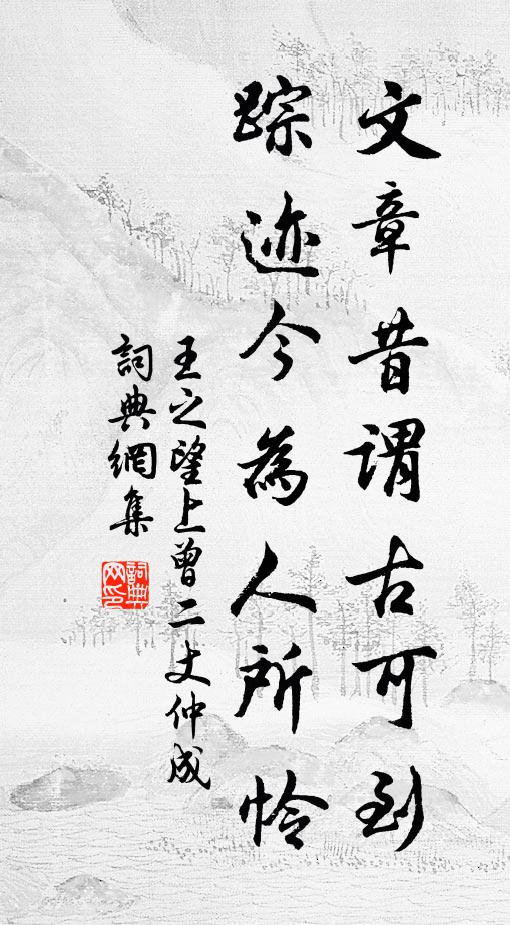 文章昔谓古可到
踪迹今為人所怜
王之望上曾二丈仲成
詞典網集
詞典
网印